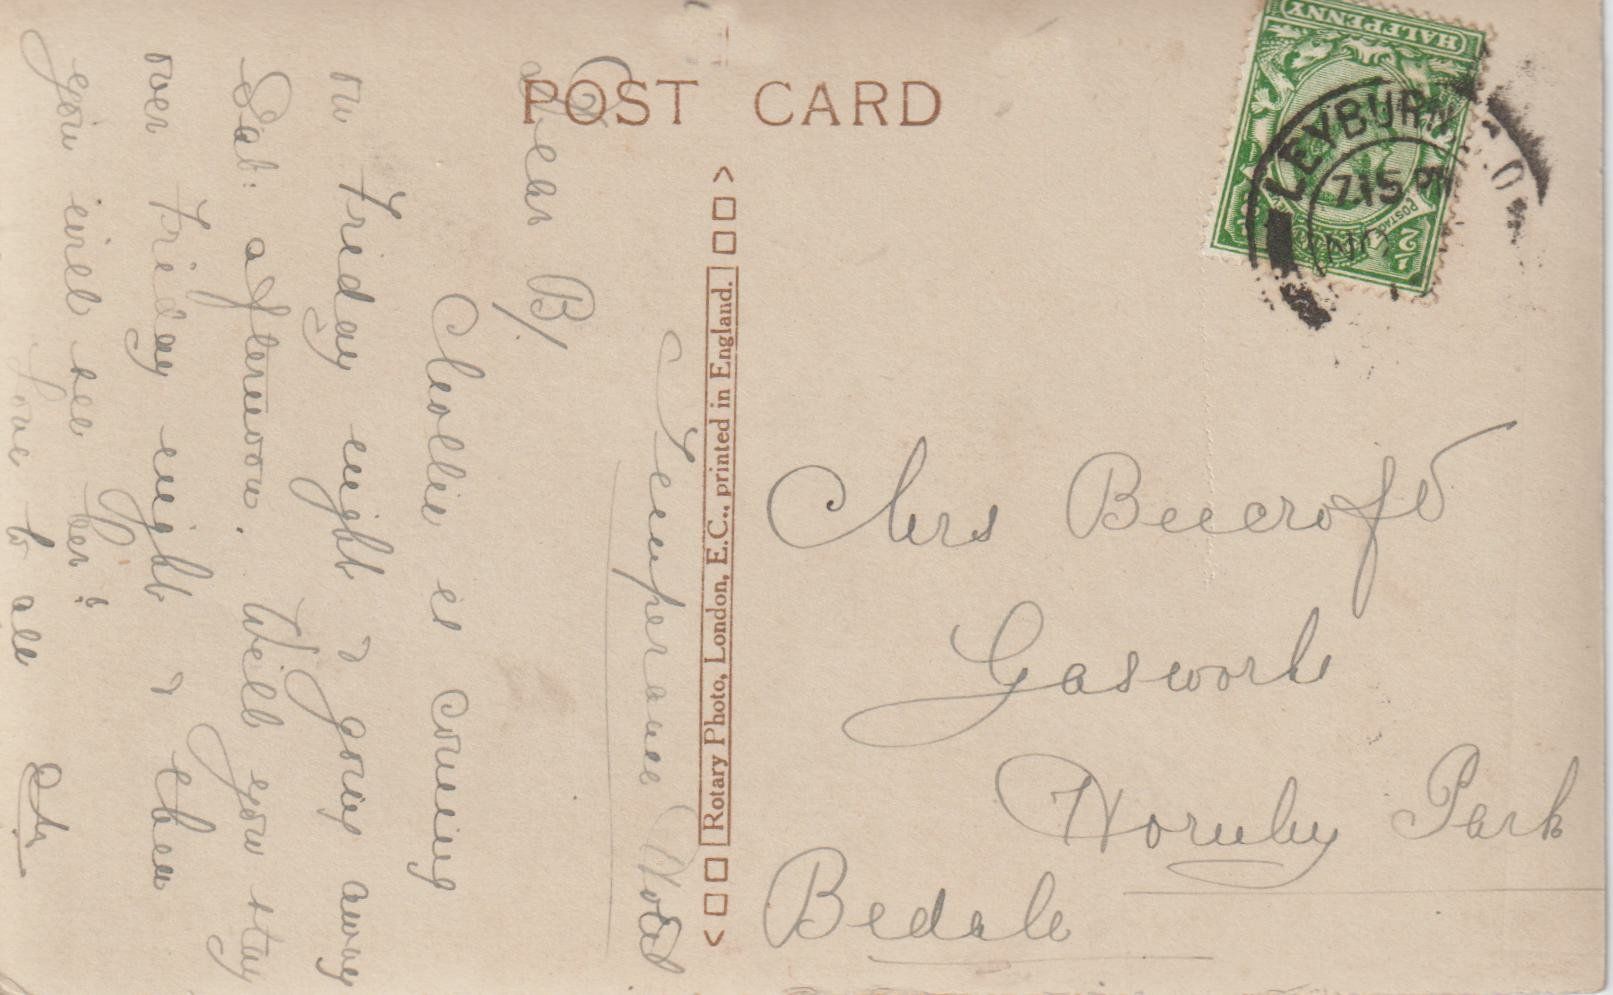 POST CARD
HALFPENNY
POSTAGE
1/2
LEYBURN
715 PM
JU
Rotary Photo, London, E.C., printed in England.
Mrs Beecroft
Gaswork
Hornby Park
Bedale
Temperance Hotel
Dear B/
Mollie is coming
on Friday night & going away
Sat: afternoon. Will you stay
over Friday night & then
you will see her!
Love to all